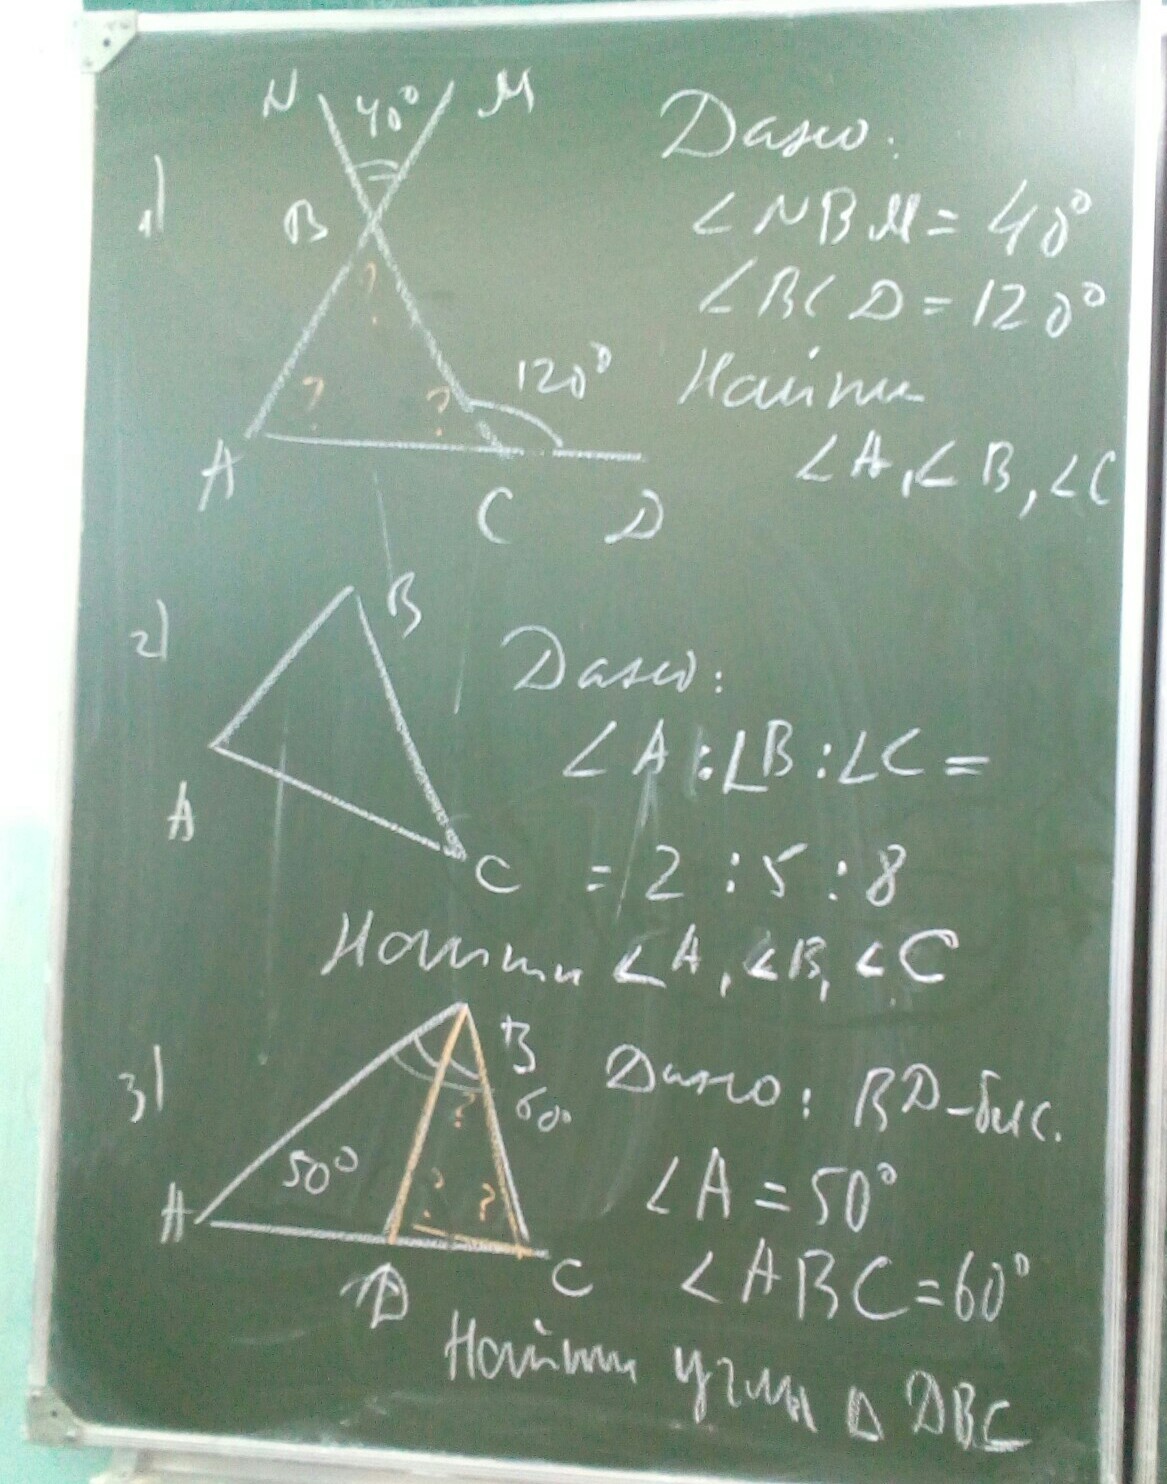 1)
N 40° M
B
?
? ?
120°
A C D
Дано:
∠NBM = 40°
∠BCD = 120°
Найти
∠A, ∠B, ∠C
2)
B
A
C
Дано:
∠A : ∠B : ∠C =
= 2 : 5 : 8
Найти ∠A, ∠B, ∠C
3)
B
60°
50°
?
? ?
A D C
Дано: BD-бис.
∠A = 50°
∠ABC = 60°
Найти углы Δ DBC